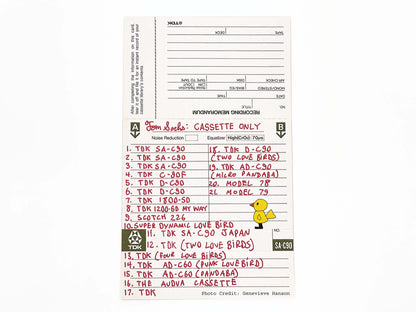 After completing the information on this card,
tear it off and file it for an instant record of your
cassette library's contents.
⊕TDK
TAPE
DECK
AIR CHECK
DISK
TAPE TO TAPE
MONO/STEREO
BIAS/EQ
Noise Reduction
DATE
TIME
NO.
TITLE
RECORDING MEMORANDUM
A
Tom Sachs: CASSETTE ONLY
B
Noise Reduction
Equalizer
High(CrO2) 70μs
1. TDK SA-C90
2. TDK SA-C90
3. TDK SA-C90
4. TDK C-90F
5. TDK D-C90
6. TDK D-C90
7. TDK 1800-SD
8. TDK 1200-SD MY WAY
9. SCOTCH 226
10. SUPER DYNAMIC LOVE BIRD
11. TDK SA-C90 JAPAN
12. TDK (TWO LOVE BIRDS)
13. TDK (FOUR LOVE BIRDS)
14. TDK AD-C60 (PUNK LOVEBIRD)
15. TDK AD-C60 (PANDABA)
16. THE AUDUA CASSETTE
17. TDK
18. TDK D-C90
(TWO LOVE BIRDS)
19. TDK AD-C90
(MICRO PANDABA)
20. MODEL 78
21. MODEL 79
TDK
NO.
SA-C90
Photo Credit: Genevieve Hanson